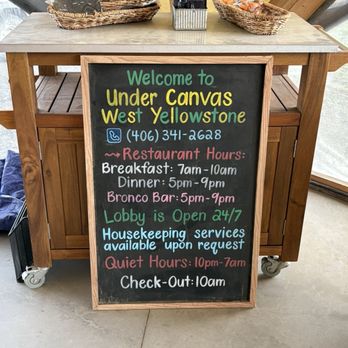 Welcome to
Under Canvas
West Yellowstone
(406) 341-2628
Restaurant Hours:
Breakfast: 7am-10am
Dinner: 5pm-9pm
Bronco Bar: 5pm-9pm
Lobby is Open 24/7
Housekeeping services
available upon request
Quiet Hours: 10pm-7am
Check-Out: 10am